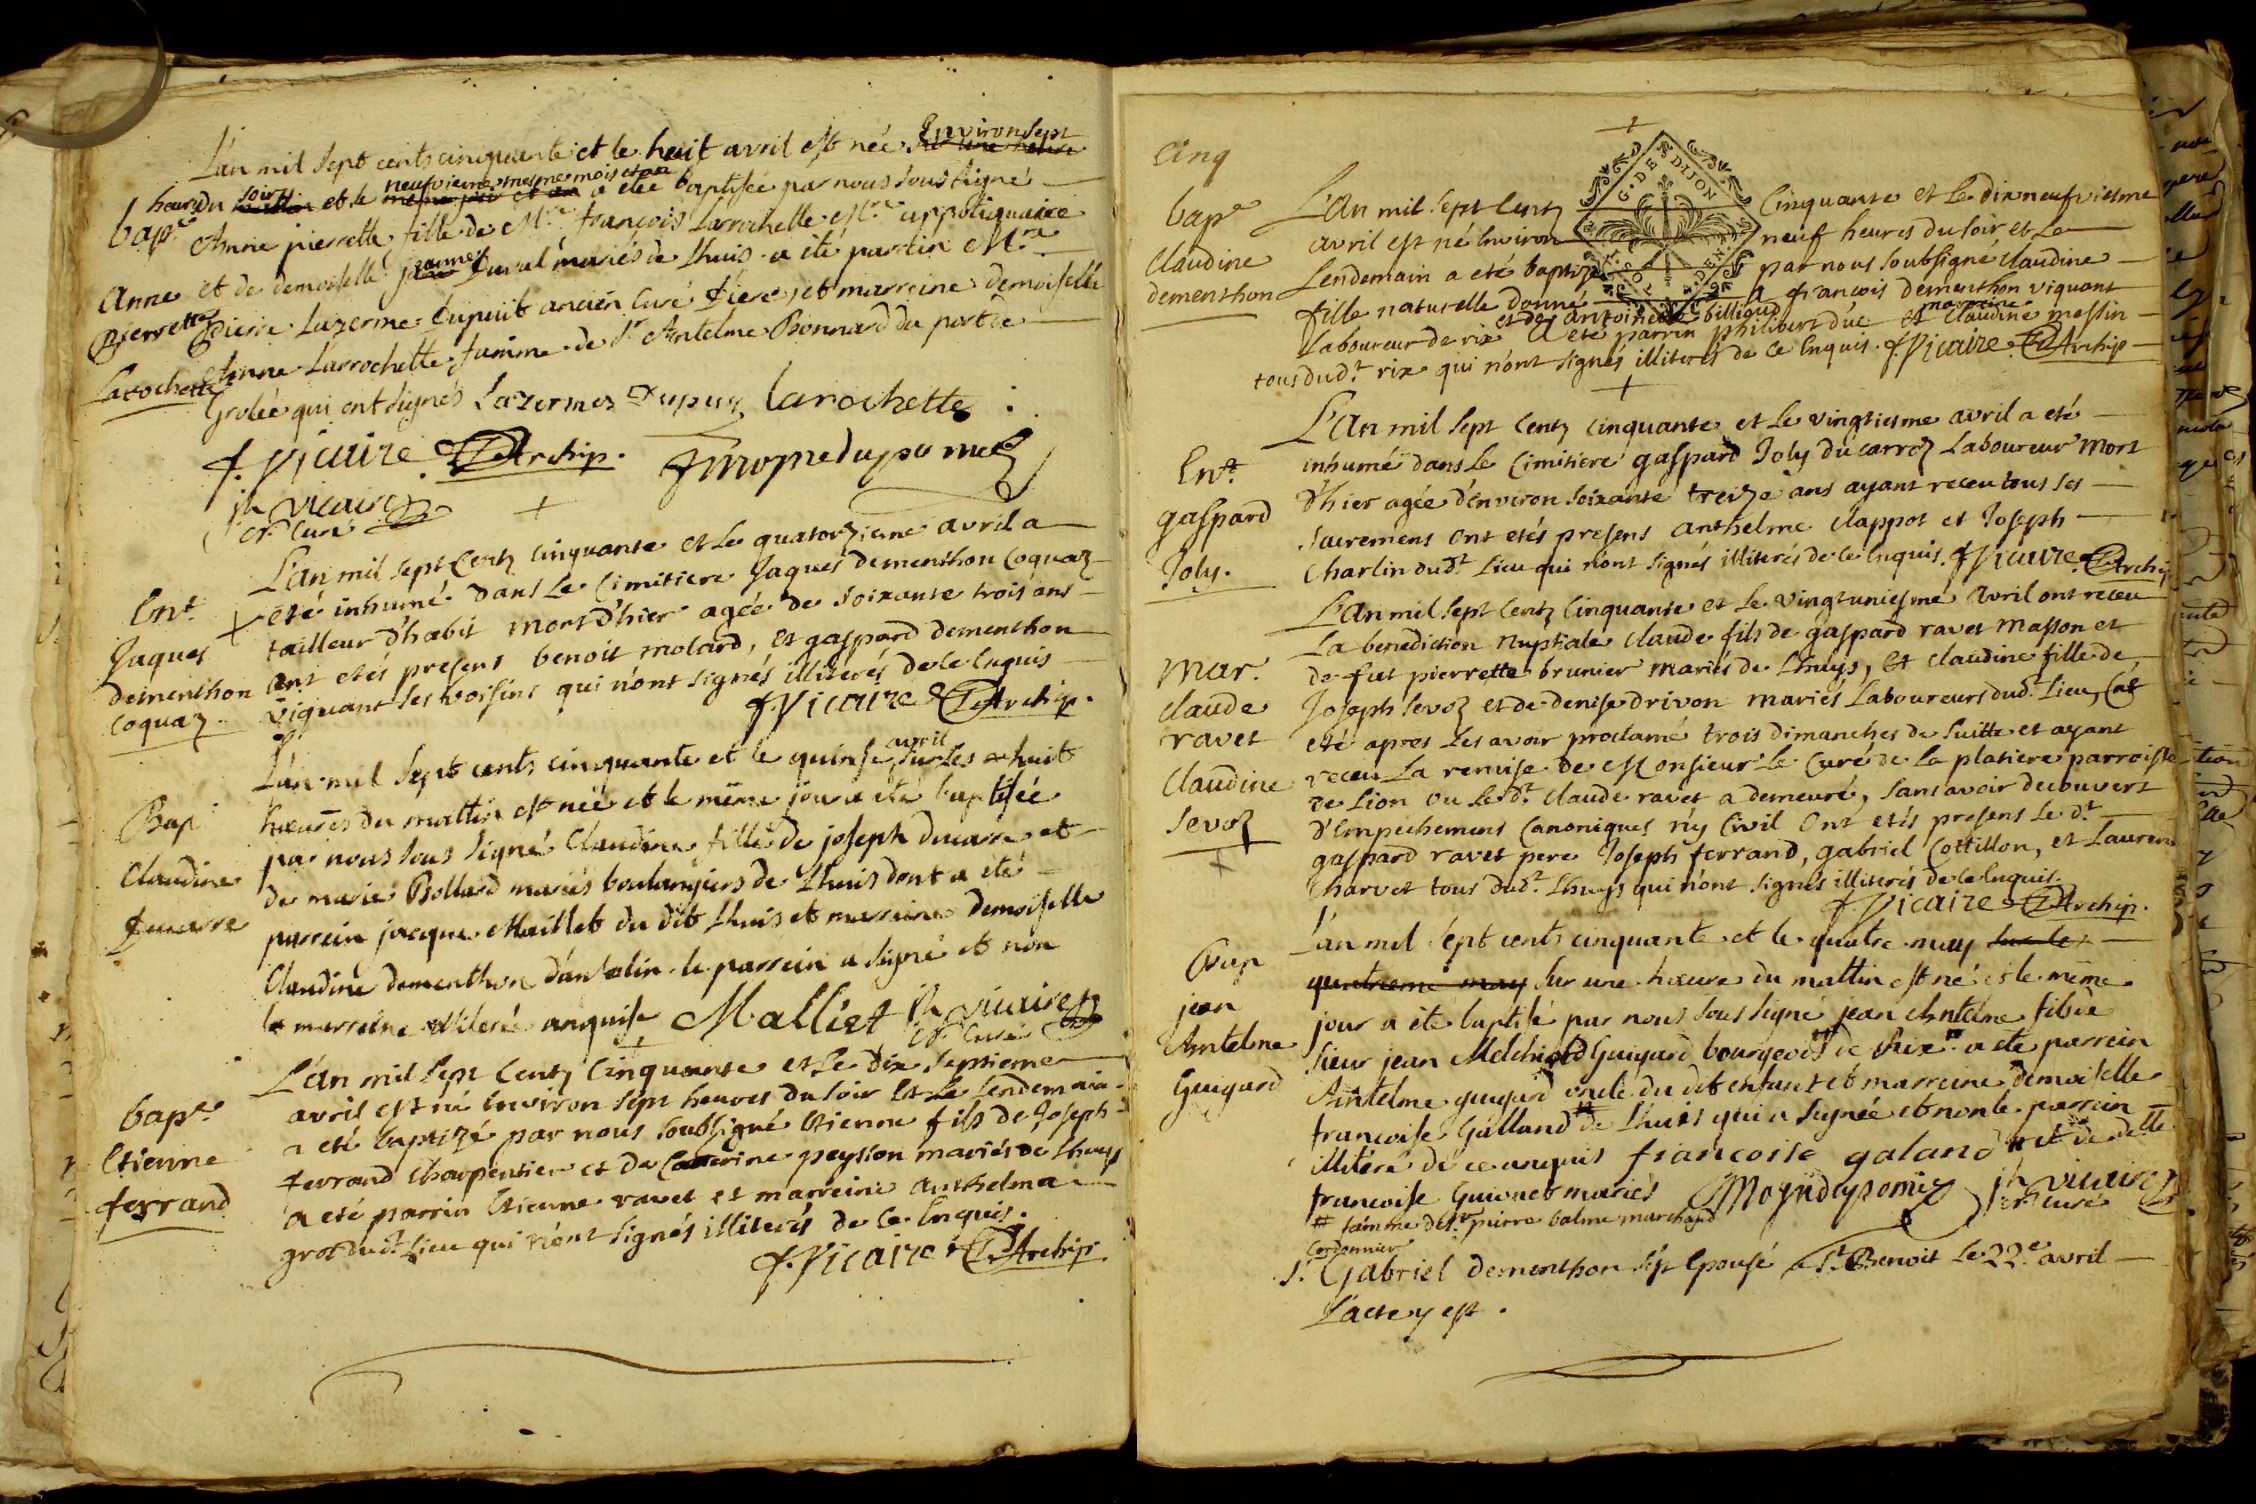 L'an mil sept cents cinquante et le huit avril est née sur une heure Environ sept
heures du mattin soir et le même jour et an neufvieme mesme mois et an a été baptisée par nous sous signé
bap.e Anne pierrette fille de M.re françois Larrochette M.re appotiquaire
et de demoiselle jeanne Duval mariés de Lhuis a été parrin M.re
Anne
pierrette
Larochette
pierre Lazerme Dupuit ancien Curé et marreine demoiselle
Anne Larrochette famme de S.r Antelme Bonnard du port de
Grolée qui ont signés Lazermes Dupuy Larochette
f. Vicaire Archip.
jh vicaire
et Curé
Ent.
Jaques
dementhon
Coquaz
L'An mil sept Centz Cinquante et Le quatorzieme avril a
eté inhumé dans Le Cimitiere Jaques dementhon Coquaz
tailleur d'habit mort d'hier agée de soixante trois ans
ont etés presens benoit molard, et gaspard dementhon
viquant ses voisins qui n'ont signés illiterés de Ce Enquis
f. Vicaire Archip.
Bap
Claudine
Ducarre
L'an mil sept cents cinquante et le quinse avril sur les huit
heures du mattin est née et le même jour a été baptisée
par nous sous signé Claudine fille de joseph ducarre et
de marie Bollard mariés boulangiers de Lhuis dont a été
parrein jacque Maillet du dit Lhuis et marreine demoiselle
Claudine dementhon d'Antolin le parrein a signé et non
la marreine illiterée anquise Malliet jh vicaire
et Curé
bap.e
Etienne
ferrand
L'An mil sept Centz Cinquante et Le dix septieme
avril est né Environ sept heures du soir Et Le Lendemain
a eté baptizé par nous soubsigné Etienne fils de Joseph
ferrand Charpentier et de Catterine peysson mariés de Lhuys
a eté parrin Etienne ravet et marreine anthelma
gros dud.t Lieu qui n'ont signés illiterés de Ce Enquis.
f. Vicaire Archip.
Cinq
G. DE DIJON
bap.e
Claudine
dementhon
L'An mil sept Centz Cinquante et Le dixneufviesme
avril est né Environ neuf heures du soir et Le
Lendemain a eté baptizé par nous soubsigné Claudine
fille naturelle donné a francois dementhon viquant
et de antoinette billioud
Laboureur de rix a eté parrin philibert duc et marreine Claudine messin
tous dud.t rix qui n'ont signés illiterés de Ce Enquis. f. Vicaire Archip
Ent.
gaspard
Joly.
L'An mil sept Centz Cinquante et Le vingtiesme avril a eté
inhumé dans Le Cimitiere gaspard Joly du carroz Laboureur mort
d'hier agée d'environ soixante treize ans ayant receu tous ses
sacremens ont etés presens anthelme Clappot et Joseph
Charlin dud.t Lieu qui n'ont signés illiterés de Ce Enquis. f. Vicaire Archip
mar.
Claude
ravet
Claudine
sevoz
L'An mil sept Centz Cinquante et Le vingtuniesme avril ont receu
La benediction nuptiale Claude fils de gaspard ravet masson et
de fut pierrette brunier mariés de Lhuys, et Claudine fille de
Joseph sevoz et de denise drivon mariés Laboureurs dud.t Lieu, Ca
eté apres Les avoir proclamé trois dimanches de suitte et ayant
receu La remise de Monsieur Le Curé de La platiere parroisse
de Lion ou Le d.t Claude ravet a demeuré, sans avoir decouvert
d'Empechemens Canoniques n'y Civil Ont etés presens Le d.t
gaspard ravet pere Joseph ferrand, gabriel Cottillon, et Laurent
Charvet tous dud.t Lhuys qui n'ont signés illiterés de Ce Enquis.
f. Vicaire Archip.
Bap
jean
Antelme
Guigard
L'an mil sept cents cinquante et le quatre may sur les
quatrieme may sur une heure du mattin est né et le même
jour a été baptisé par nous sous signé jean Antelme fils de
sieur jean Melchiord Guigard bourgeois de Rix a été parrein
Antelme guigard oncle du dit enfant et marreine demoiselle
francoise Galland de Lhuis qui a signée et non le parrein
illiteré de ce anquis francoise galand et de d.elle
francoise Guione mariés jh vicaire
et Curé
famme de S.r pierre balme marchand
Cordonnier
S.r Gabriel dementhon s'est Epousé a S.t Benoit Le 22.e avril
L'acte y est.